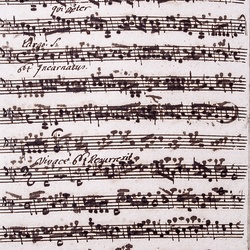 qui propter
Largo S.
Et Incarnatus.
Vivace Et Resurrexit